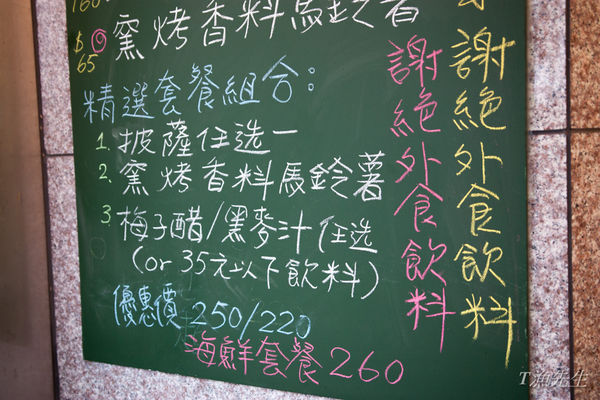 160
窯烤香料馬鈴薯
$
65
精選套餐組合:
1. 披薩任选一
2. 窯烤香料馬鈴薯
3. 梅子醋/黑麥汁任选
(or 35元以下飲料)
優惠價 250/220
海鮮套餐 260
謝絕外食飲料
謝絕外食飲料
T魚先生